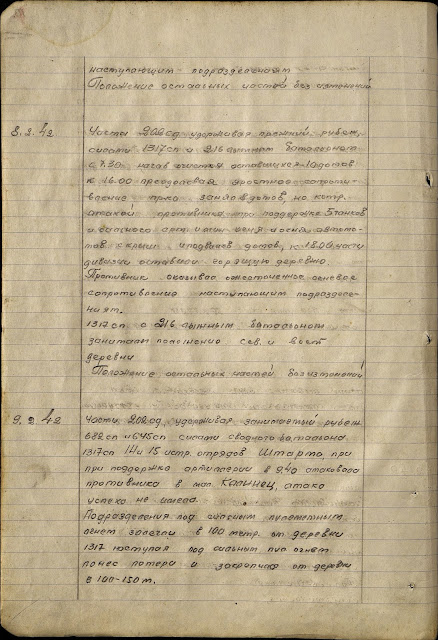 наступающим подразделениям
Положение остальных частей без изменений
8.2.42
Части 202 сд удерживая прежний рубеж,
силами 1317 сп и 216 лыжным батальоном
с 7.30 часов очистка оставшихся 10 домов
к 16.00 преодолевая яростное сопроти-
вление врага занято домов, но контр.
атакой противника при поддержке 5 танков
и сильного арт. мин. огня и огня автома-
тов с крыш и подвалов домов, к 18.00 части
дивизии оставили горящую деревню.
Противник оказывает ожесточенное огневое
сопротивление наступающим подразделе-
ниям.
1317 сп с 216 лыжным батальоном
занимали положение сев. и вост.
деревни
Положение остальных частей без изменений
9.2.42
Части 202 сд, удерживая занимаемый рубеж
682 сп и 645 сп силами сводного батальона
1317 сп 14 и 15 истр. отрядов Штарма, при
при поддержке артиллерии в 9.40 атаковала
противника в нап. Калинец, атака
успеха не имела.
Подразделения под сильным пулеметным
огнем залегли в 100 метр. от деревни
1317 наступая под сильным пул огнем
понес потери и закрепился от деревни
в 100-150 м.